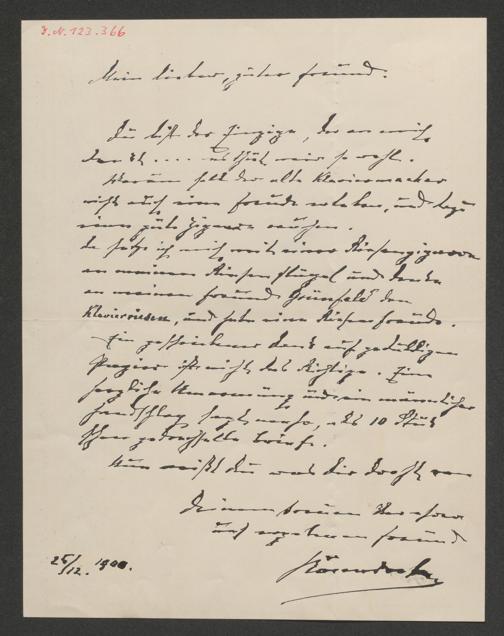 I.N. 123.366
Mein lieber, guter Freund!
Du bist der Einzige, der an mich
denkt .... es thut mir so wohl.
Warum soll der alte Klaviermacher
nicht auch eine Freude erleben, und dazu
eine gute Zigarre rauchen.
Da setze ich mich mit einer Riesenzigarre
an meinen Riesenflügel und denke
an meinen Freund Grünfeld den
Klavierriesen, und habe eine Riesenfreude.
Ein geschriebener Dank auf geduldigem
Papier ist nicht das Richtige. Eine
herzliche Umarmung und ein männlicher
Handschlag sagt mehr, als 10 Stück
schön gedrechselte Briefe.
Nun weißt Du was Dir droht von
Deinem treuen Verehrer
und ergebenen Freund
Bösendorfer
25/12. 1900.